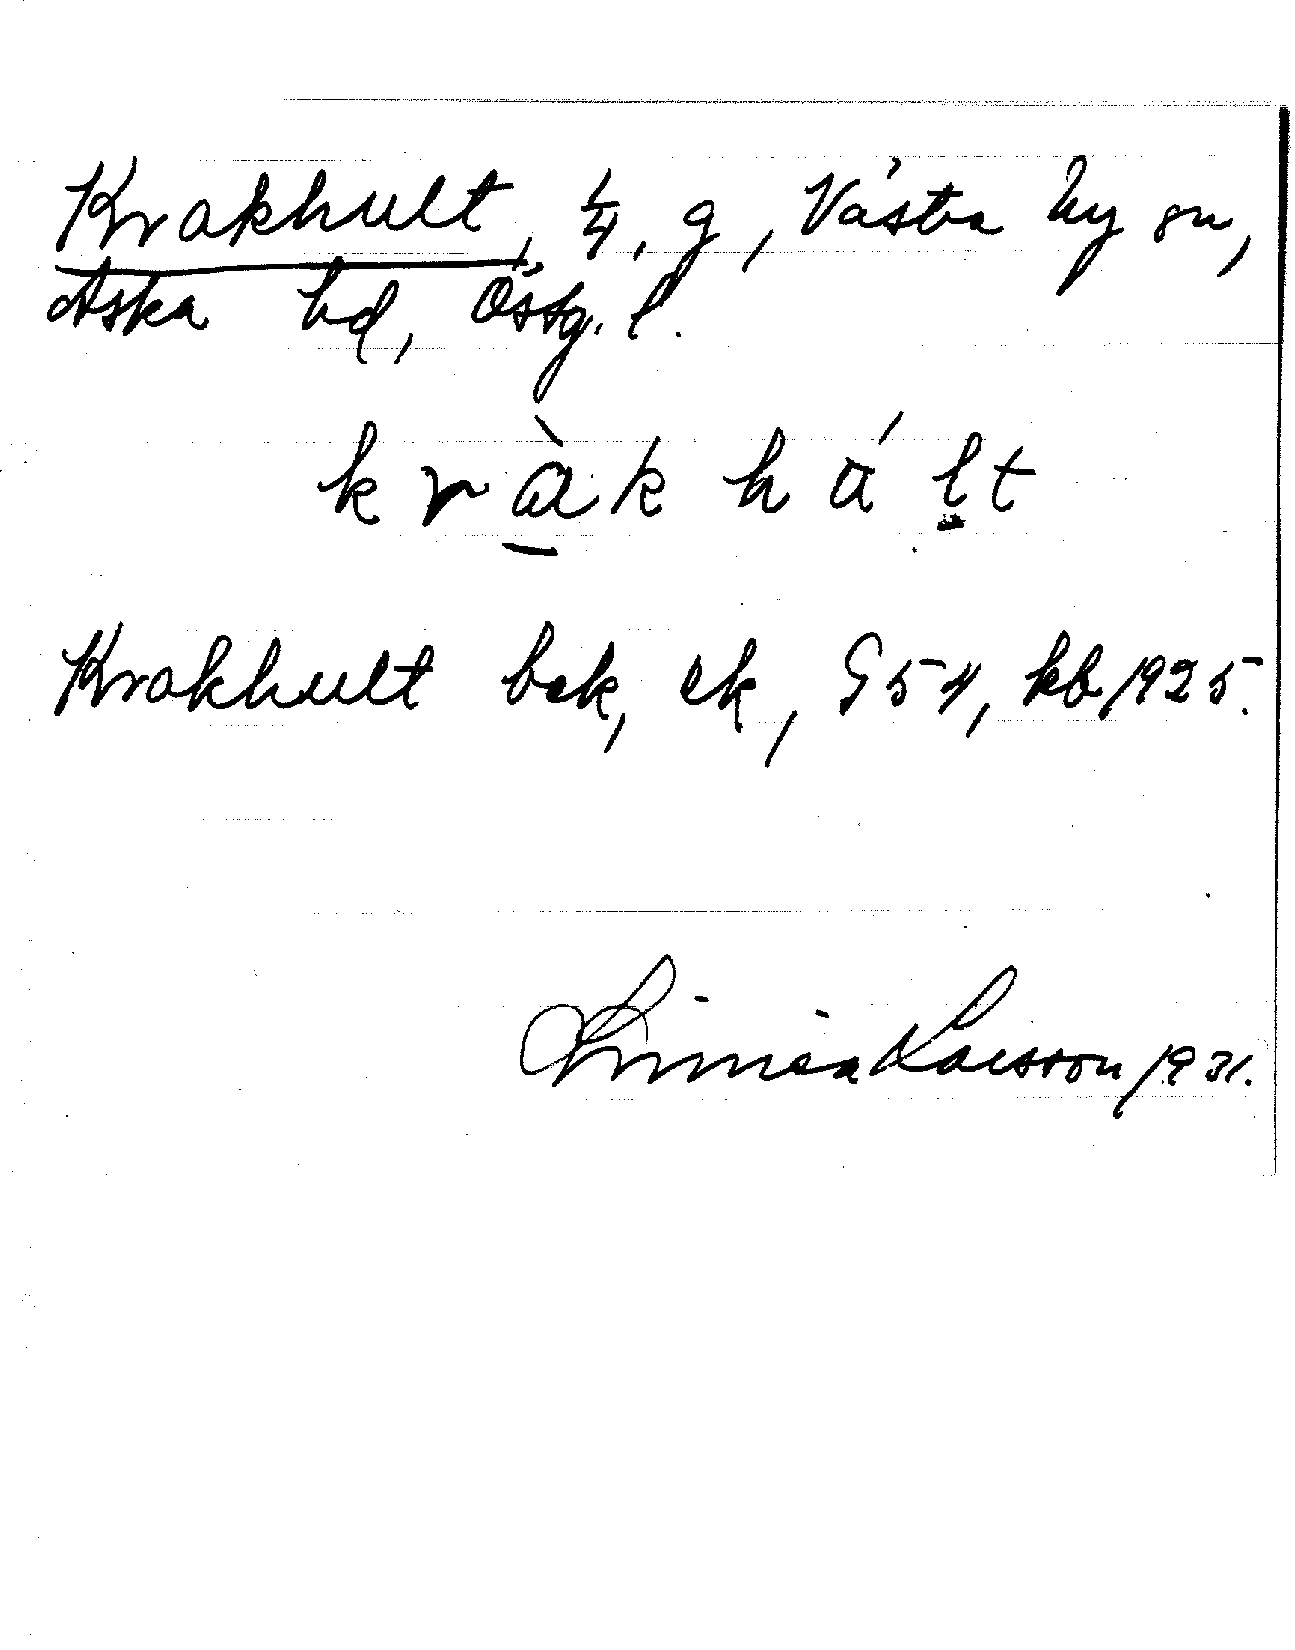 Krakhult, 1/4, g, Västra Ny sn,
Aska hd, Östg. l.
kràkhált
Krakhult bek, ek, G 54, kb 1925.
Linnéa Larsson 1931.